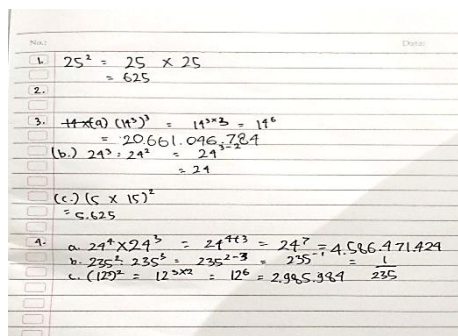 No:
Date:
1. 25² = 25 × 25
= 625
2.
3. (a) (14³)³ = 14³ˣ³ = 14⁶
= 20.661.046.784
(b.) 24³ : 24² = 24³⁻²
= 24
(c.) (5 × 15)²
= 5.625
4. a. 24⁴ × 24³ = 24⁴⁺³ = 24⁷ = 4.586.471.424
b. 235² : 235³ = 235²⁻³ = 235⁻¹ = 1/235
c. (12³)² = 12³ˣ² = 12⁶ = 2.985.984